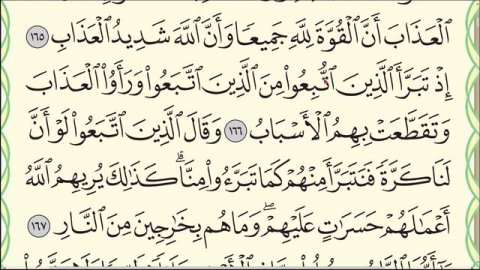 ٱلۡعَذَابَ أَنَّ ٱلۡقُوَّةَ لِلَّهِ جَمِيعٗا وَأَنَّ ٱللَّهَ شَدِيدُ ٱلۡعَذَابِ ١٦٥
إِذۡ تَبَرَّأَ ٱلَّذِينَ ٱتُّبِعُواْ مِنَ ٱلَّذِينَ ٱتَّبَعُواْ وَرَأَوُاْ ٱلۡعَذَابَ
وَتَقَطَّعَتۡ بِهِمُ ٱلۡأَسۡبَابُ ١٦٦ وَقَالَ ٱلَّذِينَ ٱتَّبَعُواْ لَوۡ أَنَّ
لَنَا كَرَّةٗ فَنَتَبَرَّأَ مِنۡهُمۡ كَمَا تَبَرَّءُواْ مِنَّاۗ كَذَٰلِكَ يُرِيهِمُ ٱللَّهُ
أَعۡمَٰلَهُمۡ حَسَرَٰتٍ عَلَيۡهِمۡۖ وَمَا هُم بِخَٰرِجِينَ مِنَ ٱلنَّارِ ١٦٧